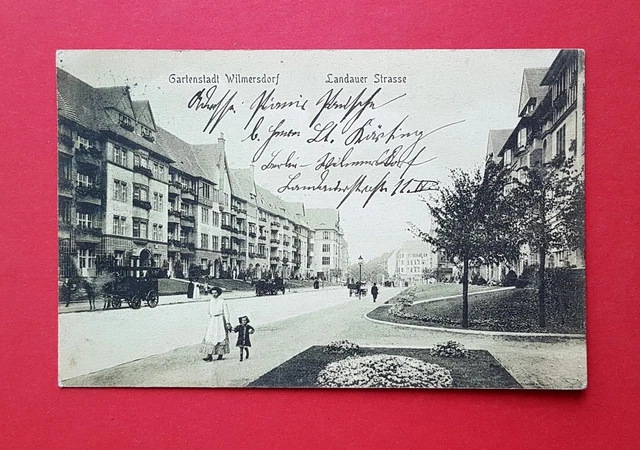 Gartenstadt Wilmersdorf Landauer Strasse
Adresse
b. Herrn Lt. Körting
Berlin-Wilmersdorf
Landauerstraße 11. IV